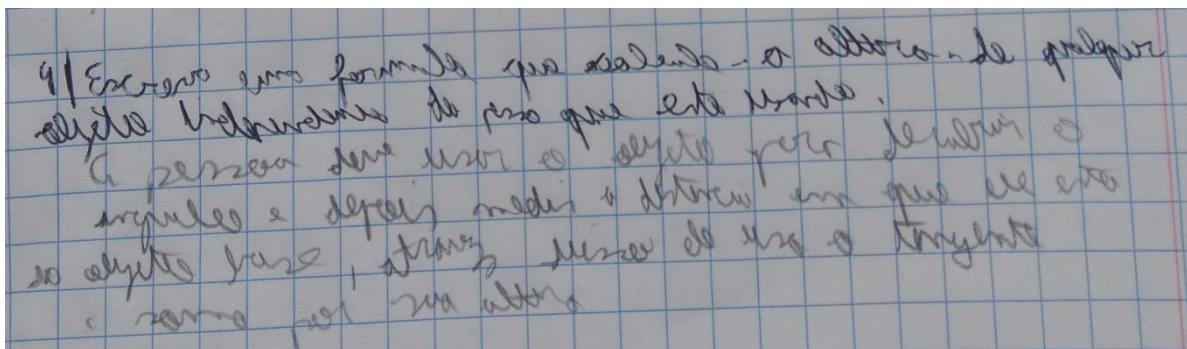 4) Escreva uma formula que calcule a altura de qualquer
objeto independente do que esta usando.
A pessoa deve usar o objeto para descobrir o
angulo e depois medir a distancia em que ele esta
do objeto base, atraves disso se usa a tangente
e soma por sua altura